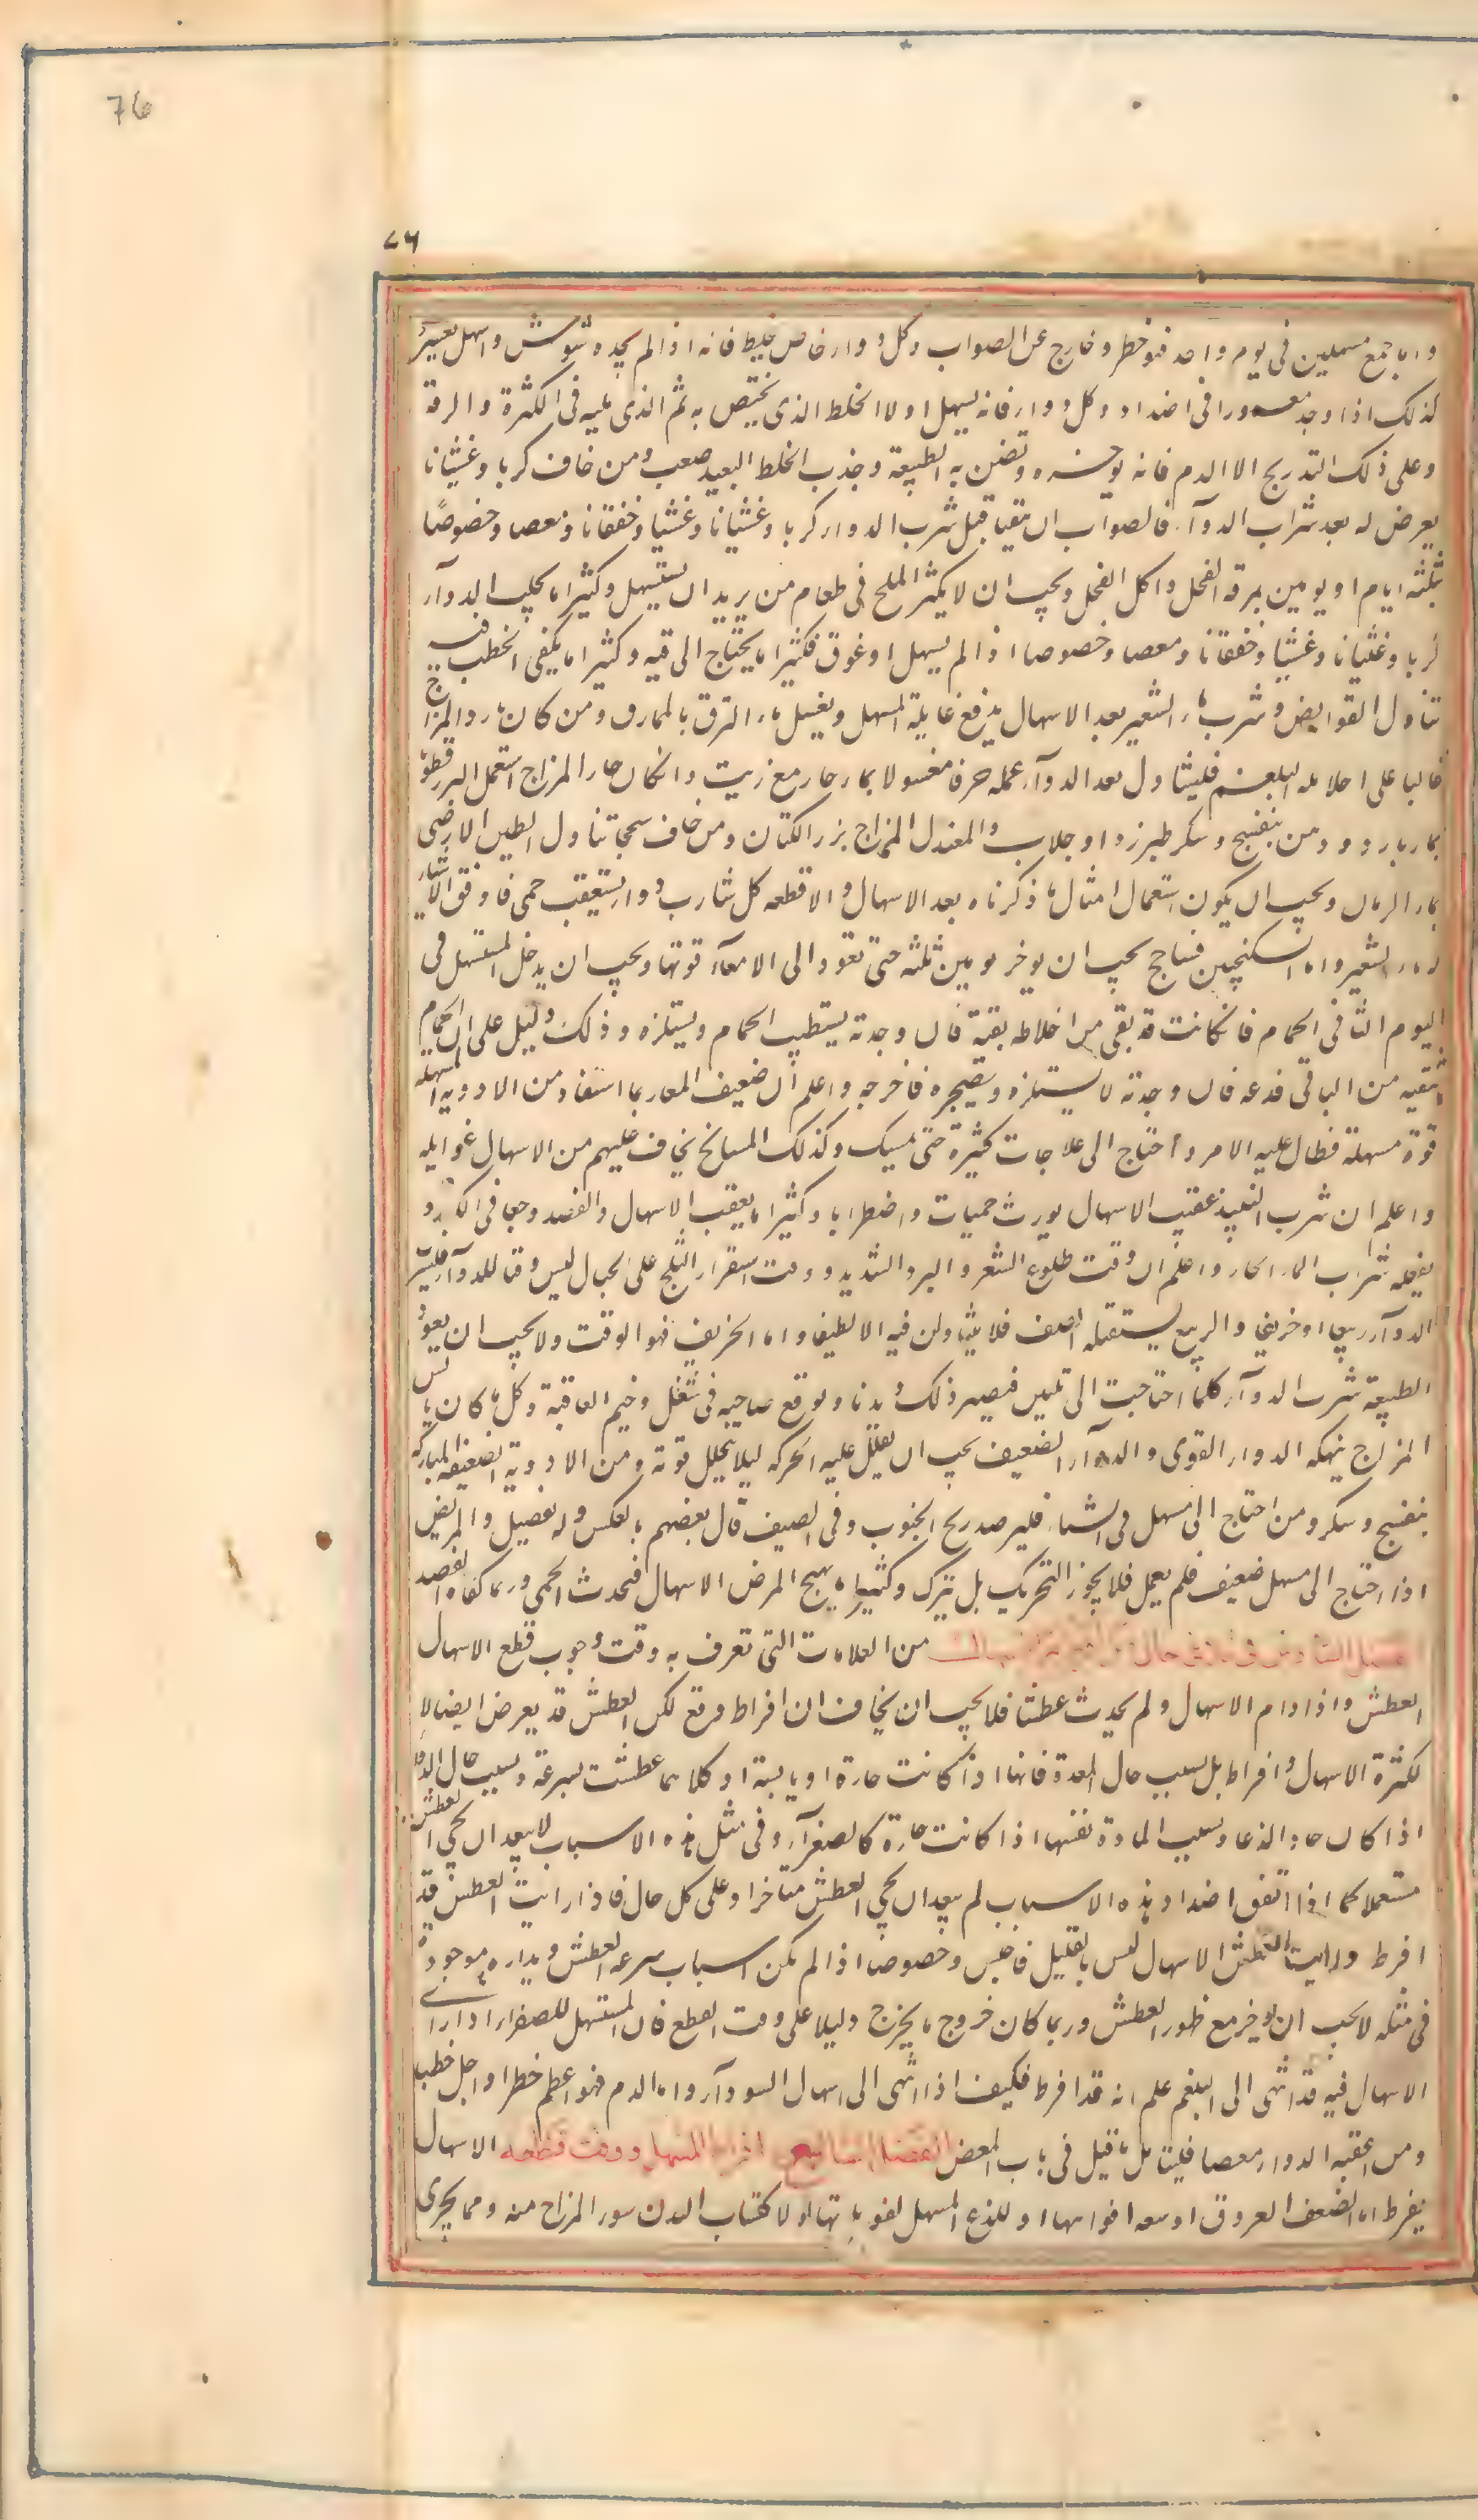 76
٧٦
واما جمع مسهلين فى يوم واحد فهو خطر وخارج عن الصواب وكل دواء خاص بخلط فانه اذا لم يجده شوش واسهل بعسر
كذلك اذا وجده مغمورا فى اضداد وكل دواء فانه يسهل اولا الخلط الذى يختص به ثم الذى يليه فى الكثرة والرقة
وعلى ذلك التدريج الا الدم فانه يوخره وتضن به الطبيعة وجذب الخلط البعيد صعب ومن خاف كربا وغشيانا
يعرض له بعد شراب الدوآء فالصواب ان يتقيا قبل شرب الدواء كربا وغشيانا وغشيا وخفقانا ومغصا وخصوصًا
بثلثه ايام او يومين بمرقة الفجل واكل الفجل ويجب ان لا يكثر الملح فى طعام من يريد ان يستسهل وكثيرا ما يجلب الدوآء
كربا وغثيانا وغشيا وخفقانا ومغصا وخصوصا اذا لم يسهل او عوق فكثيرا ما يحتاج الى قيه وكثيرا ما يكفى الخطب فيه
تناول القوابض وشرب ماء الشعير بعد الاسهال يدفع غايلة المسهل ويغسل ما التزق بالممارق ومن كان بارد المزاج
غالبا على اخلاطه البلغم فليتناول بعد الدوآء عمله حرفا مغسولا بماء حار مع زيت وان كان حار المزاج استعمل البزرقطونا
بماء بارد ودهن بنفسج وسكر طبرزد او جلاب والمعتدل المزاج بزر الكتان ومن خاف سحجا تناول الطين الارمنى
بماء الرمان ويجب ان يكون استعمال امثال ما ذكرناه بعد الاسهال والا قطعه كل شارب دواء يستعقب حمى فاوفق الاشياء
له ماء الشعير واما السكنجبين فساحج يجب ان يوخر يومين ثلثه حتى تعود الى الامعآء قوتها ويجب ان يدخل المستسهل فى
اليوم الثانى الحمام فان كانت قد بقى من اخلاطه بقية فان وجدته يستطيب الحمام ويستلذه وذلك دليل على ان الحمام
تنقيه من الباقى فدعه فان وجدته لا يستلذه ويضجره فاخرجه واعلم ان ضعيف المعا ربما استفاد من الادوية المسهله
قوة مسهلة فطال عليه الامر واحتاج الى علاجات كثيرة حتى يمسك وكذلك المشايخ يخاف عليهم من الاسهال غوايله
واعلم ان شرب النبيذ عقيب الاسهال يورث حميات واضطرابا وكثيرا ما يعقب الاسهال والفصد وجعا فى الكبد و
يقلعه شراب الماء الحار واعلم ان وقت طلوع الشعرى والبرد الشديد ووقت استقرار الثلج على الجبال ليس وقتا للدوآء فليشرب
الدوآء ربيعا او خريفا والربيع يستقبله الصيف فلا يتناولن فيه الا لطيفا واما الخريف فهو الوقت ولا يجب ان يعود
الطبيعة شرب الدوآء كلما احتاجت الى تليين فيصير ذلك ديدنا ويوقع صاحبه فى شغل وخيم العاقبة وكل ما كان يابس
المزاج ينهكه الدواء القوى والدوآء الضعيف يجب ان يقلل عليه الحركه ليلا يتحلل قوته ومن الادوية الضعيفه المباركه
بنفسج وسكر ومن احتاج الى مسهل فى الشتاء فليرصد ريح الجنوب وفى الصيف قال بعضهم بالعكس وله تفصيل والمريض
اذا احتاج الى مسهل ضعيف فلم يعمل فلا يجوز التحريك بل يترك وكثيرا ما يهيج المرض الاسهال فتحدث الحمى وربما كفاه الفصد
من العلامات التى تعرف به وقت وجوب قطع الاسهال
العطش واذا دام الاسهال ولم يحدث عطشا فلا يجب ان يخاف ان افراط وقع لكن العطش قد يعرض ايضا لا
لكثرة الاسهال وافراط بل بسبب حال المعدة فانها اذا كانت حارة او يابسة او كلاهما عطشت بسرعة وبسبب حال الدوآء
اذا كان حادا لذعا وبسبب المادة نفسها اذا كانت حارة كالصفرآء وفى مثل هذه الاسباب لا يبعد ان يجى العطش
مستعجلا كما اذا اتفق اضداد هذه الاسباب لم يبعد ان يجى العطش متاخرا وعلى كل حال فاذا رايت العطش قد
افرط ورايت العطش الاسهال ليس بالقليل فاحبس وخصوصا اذا لم يكن اسباب سرعه العطش ويداره موجودة
فى مثله لا يجب ان يوخر مع ظهور العطش وربما كان خروج ما يخرج دليلا على وقت القطع فان المستسهل للصفراء اذا راى
الاسهال فيه قد انتهى الى البلغم علم انه قد افرط فكيف اذا انتهى الى اسهال السودآء واما الدم فهو اعظم خطرا واجل خطبا
ومن اعقبه الدواء مغصا فليتامل ما قيل فى باب المغص الفصل السابع افراط المسهل ووقت قطعه الاسهال
يفرط اما لضعف العروق او سعه افواهها او للذع المسهل لفوهاتها او لاكتساب البدن سوء المزاج منه ومما يجرى